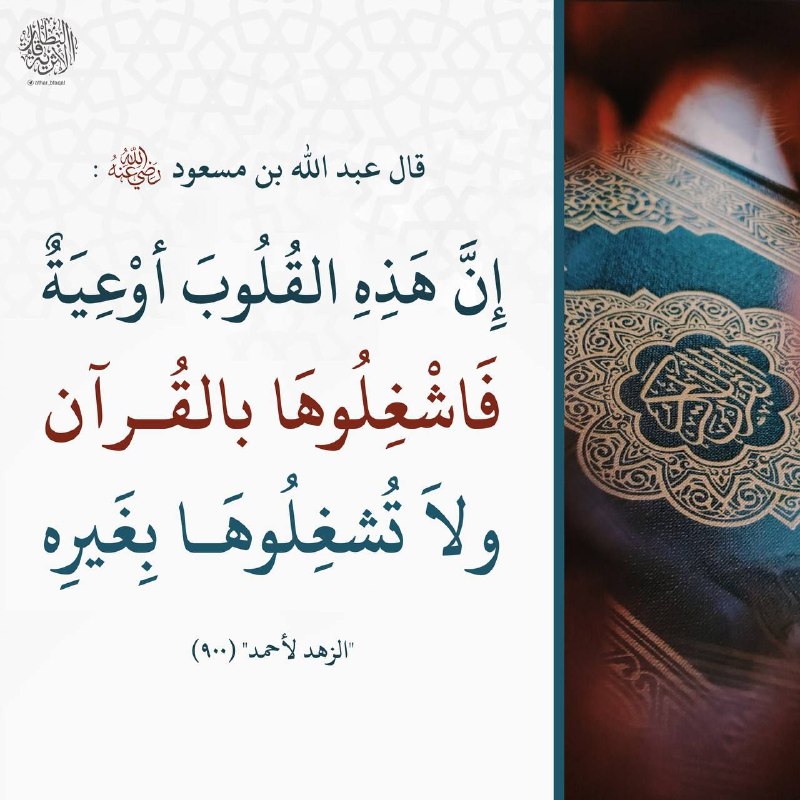 قال عبد الله بن مسعود رَضِيَ اللهُ عَنْهُ :
إِنَّ هَذِهِ القُلُوبَ أوْعِيَةٌ
فَاشْغِلُوهَا بالقُـرآن
ولاَ تُشغِلُوهَـا بِغَيرِه
"الزهد لأحمد" (٩٠٠)